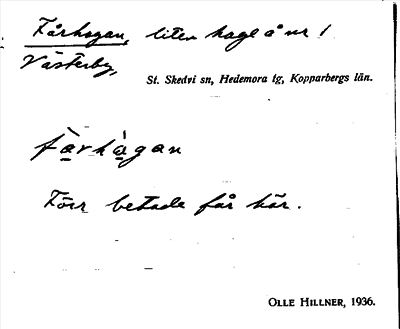 Fårhagan, liten hage å nr 1
Västerby,
St. Skedvi sn, Hedemora tg, Kopparbergs län.
fà̱rhà̱gan
Förr betade får här.
OLLE HILLNER, 1936.